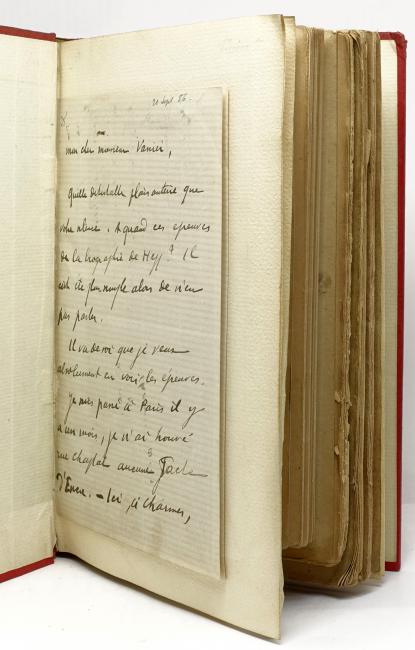 20 Sept. 86.
mon cher monsieur Vanier,
Quelle détestable plaisanterie que
votre silence. A quand ces épreuves
de la biographie de Hey ? Il
eût été plus simple alors de n'en
pas parler.
Il va de soi que je veux
absolument en voir les épreuves.
Je suis passé à Paris il y
a un mois, je n'ai trouvé
rue Chaptal aucune Tache
D'Encre. — Ici, je